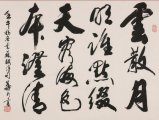 雲散月
明誰點綴
天容海色
本澄清